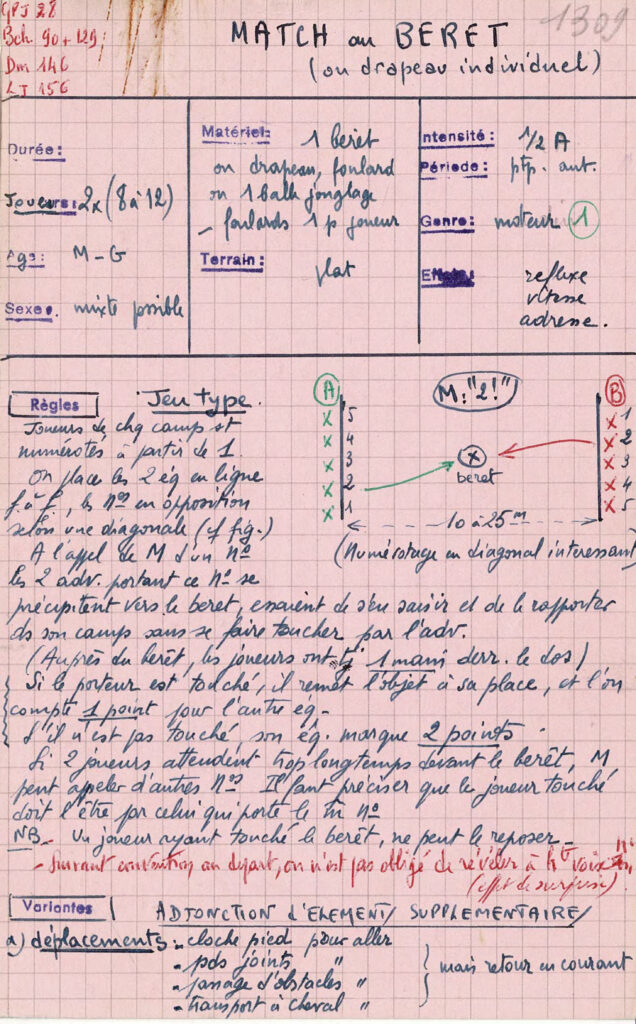 GPJ 28
Bch. 90 + 129
Dm 146
LJ 156
1309
MATCH au BERET
(ou drapeau individuel)
Durée:
Joueurs: 2x (8 à 12)
Age: M - G
Sexe. mixte possible
Matériel: 1 beret
ou drapeau, foulard
ou 1 balle jonglage
- foulards 1 p joueur
Terrain: plat
Intensité: 1/2 A
Période: ptp. aut.
Genre: moteur 1
reflexe
vitesse
adresse.
Règles Jeu type.
Joueurs de chq camp st
numérotés à partir de 1.
On place les 2 éq en ligne
f à f, les nos en opposition
selon une diagonale (cf fig.)
A l'appel de M d'un No
les 2 adv. portant ce No se
précipitent vers le beret, essaient de s'en saisir et de le rapporter
ds son camp sans se faire toucher par l'adv.
(Auprès du berêt, les joueurs ont 1 main derr. le dos)
Si le porteur est touché, il remet l'objet à sa place, et l'on
compte 1 point pour l'autre eq -
S'il n'est pas touché son éq. marque 2 points.
Si 2 joueurs attendent trop longtemps devant le berêt, M
peut appeler d'autres Nos Il faut préciser que le joueur touché
doit l'être par celui qui porte le m No
NB - Un joueur ayant touché le berêt, ne peut le reposer -
- Suivant convention au départ, on n'est pas obligé de révéler à hte voix
(effet de surprise)
A
M: "2!"
B
x 5
x 4
x 3
x 2
x 1
x
beret
x 1
x 2
x 3
x 4
x 5
10 à 25 m
(Numérotage en diagonal interessant)
Variantes ADJONCTION d'ELEMENTS SUPPLEMENTAIRES
a) déplacements - cloche pied pour aller
- pds joints "
- passage d'obstacles "
- transport à cheval "
mais retour en courant